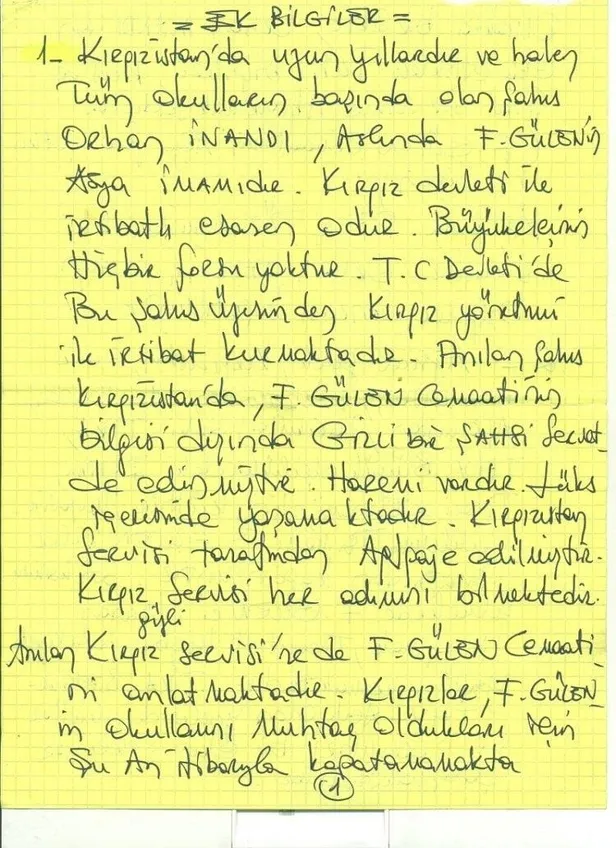 = EK BİLGİLER =
1- Kırgızistan'da uzun yıllardır ve halen
Tüm okulların başında olan şahıs
Orhan İNANDI, Aslında F.GÜLEN'in
Asya imamıdır. Kırgız devleti ile
irtibatlı esasen odur. Büyükelçinin
Hiçbir forsu yoktur. T.C Devleti'de
Bu şahıs Üzerinden Kırgız yönetimi
ile irtibat kurmaktadır. Anılan şahıs
Kırgızistan'da, F.GÜLEN Cemaatinin
bilgisi dışında Gizli bir ŞAHSİ Servet
de edinmiştir. Haremi vardır. Lüks
içerisinde yaşamaktadır. Kırgızistan
Servisi tarafından Angaje edilmiştir.
Kırgız Servisi her adımını bilmektedir.
gizli
Anılan Kırgız servisi'ne de F.GÜLEN Cemaati-
ni anlatmaktadır. Kırgızlar, F.GÜLEN-
in okullarını Muhtaç Oldukları için
Şu An itibarıyla kapatamamakta
1